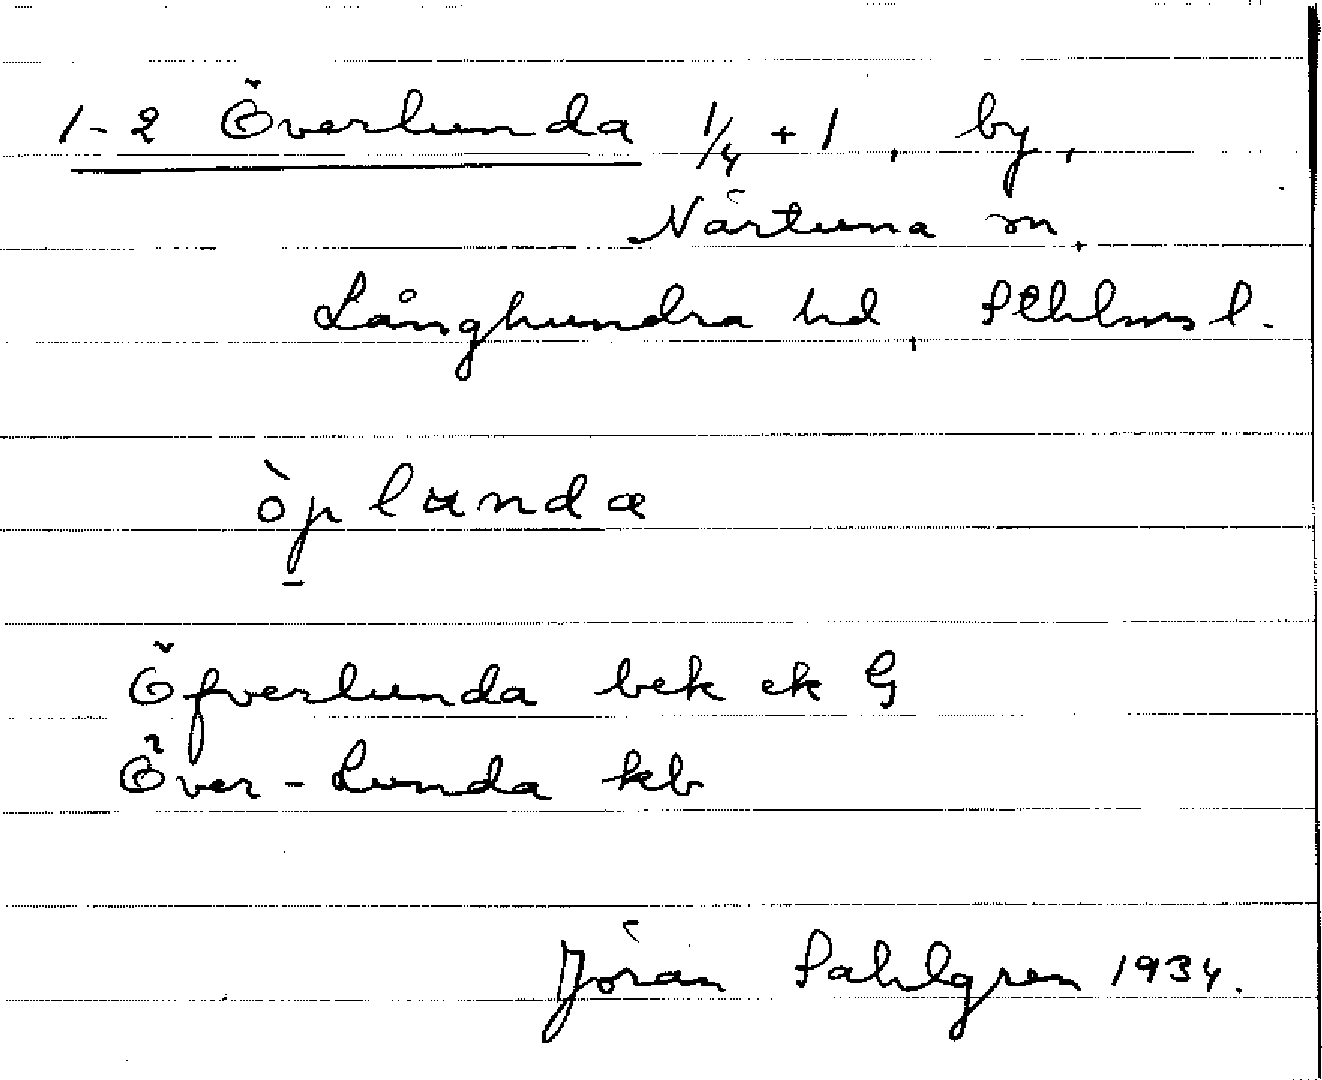 1-2 Överlunda 1/4 + 1, by,
Närtuna sn,
Långhundra hd, Sthlms l.
òplunda
Öfverlunda bek ek G
Över-Lunda kb
Jöran Sahlgren 1934.